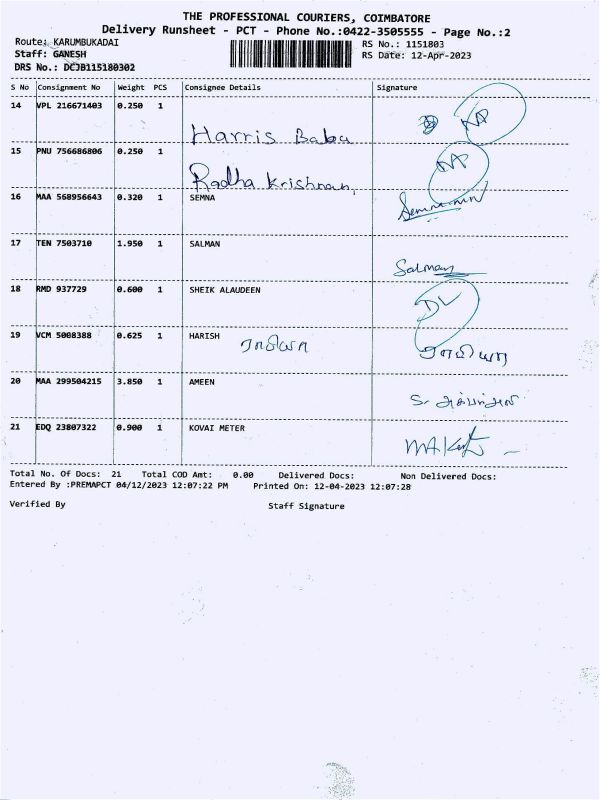 THE PROFESSIONAL COURIERS, COIMBATORE
Delivery Runsheet - PCT - Phone No.:0422-3505555 - Page No.:2
Route: KARUMBUKADAI
RS No.: 1151803
Staff: GANESH
RS Date: 12-Apr-2023
DRS No.: DCJB115180302
S No Consignment No Weight PCS Consignee Details Signature
14 VPL 216671403 0.250 1
Harris Babu
15 PNU 756686806 0.250 1
Radha Krishnan,
16 MAA 568956643 0.320 1 SEMNA
17 TEN 7503710 1.950 1 SALMAN
Salman
18 RMD 937729 0.600 1 SHEIK ALAUDEEN DL
19 VCM 5008388 0.625 1 HARISH
20 MAA 299504215 3.850 1 AMEEN
21 EDQ 23807322 0.900 1 KOVAI METER
Total No. Of Docs: 21 Total COD Amt: 0.00 Delivered Docs: Non Delivered Docs:
Entered By :PREMAPCT 04/12/2023 12:07:22 PM Printed On: 12-04-2023 12:07:28
Verified By Staff Signature